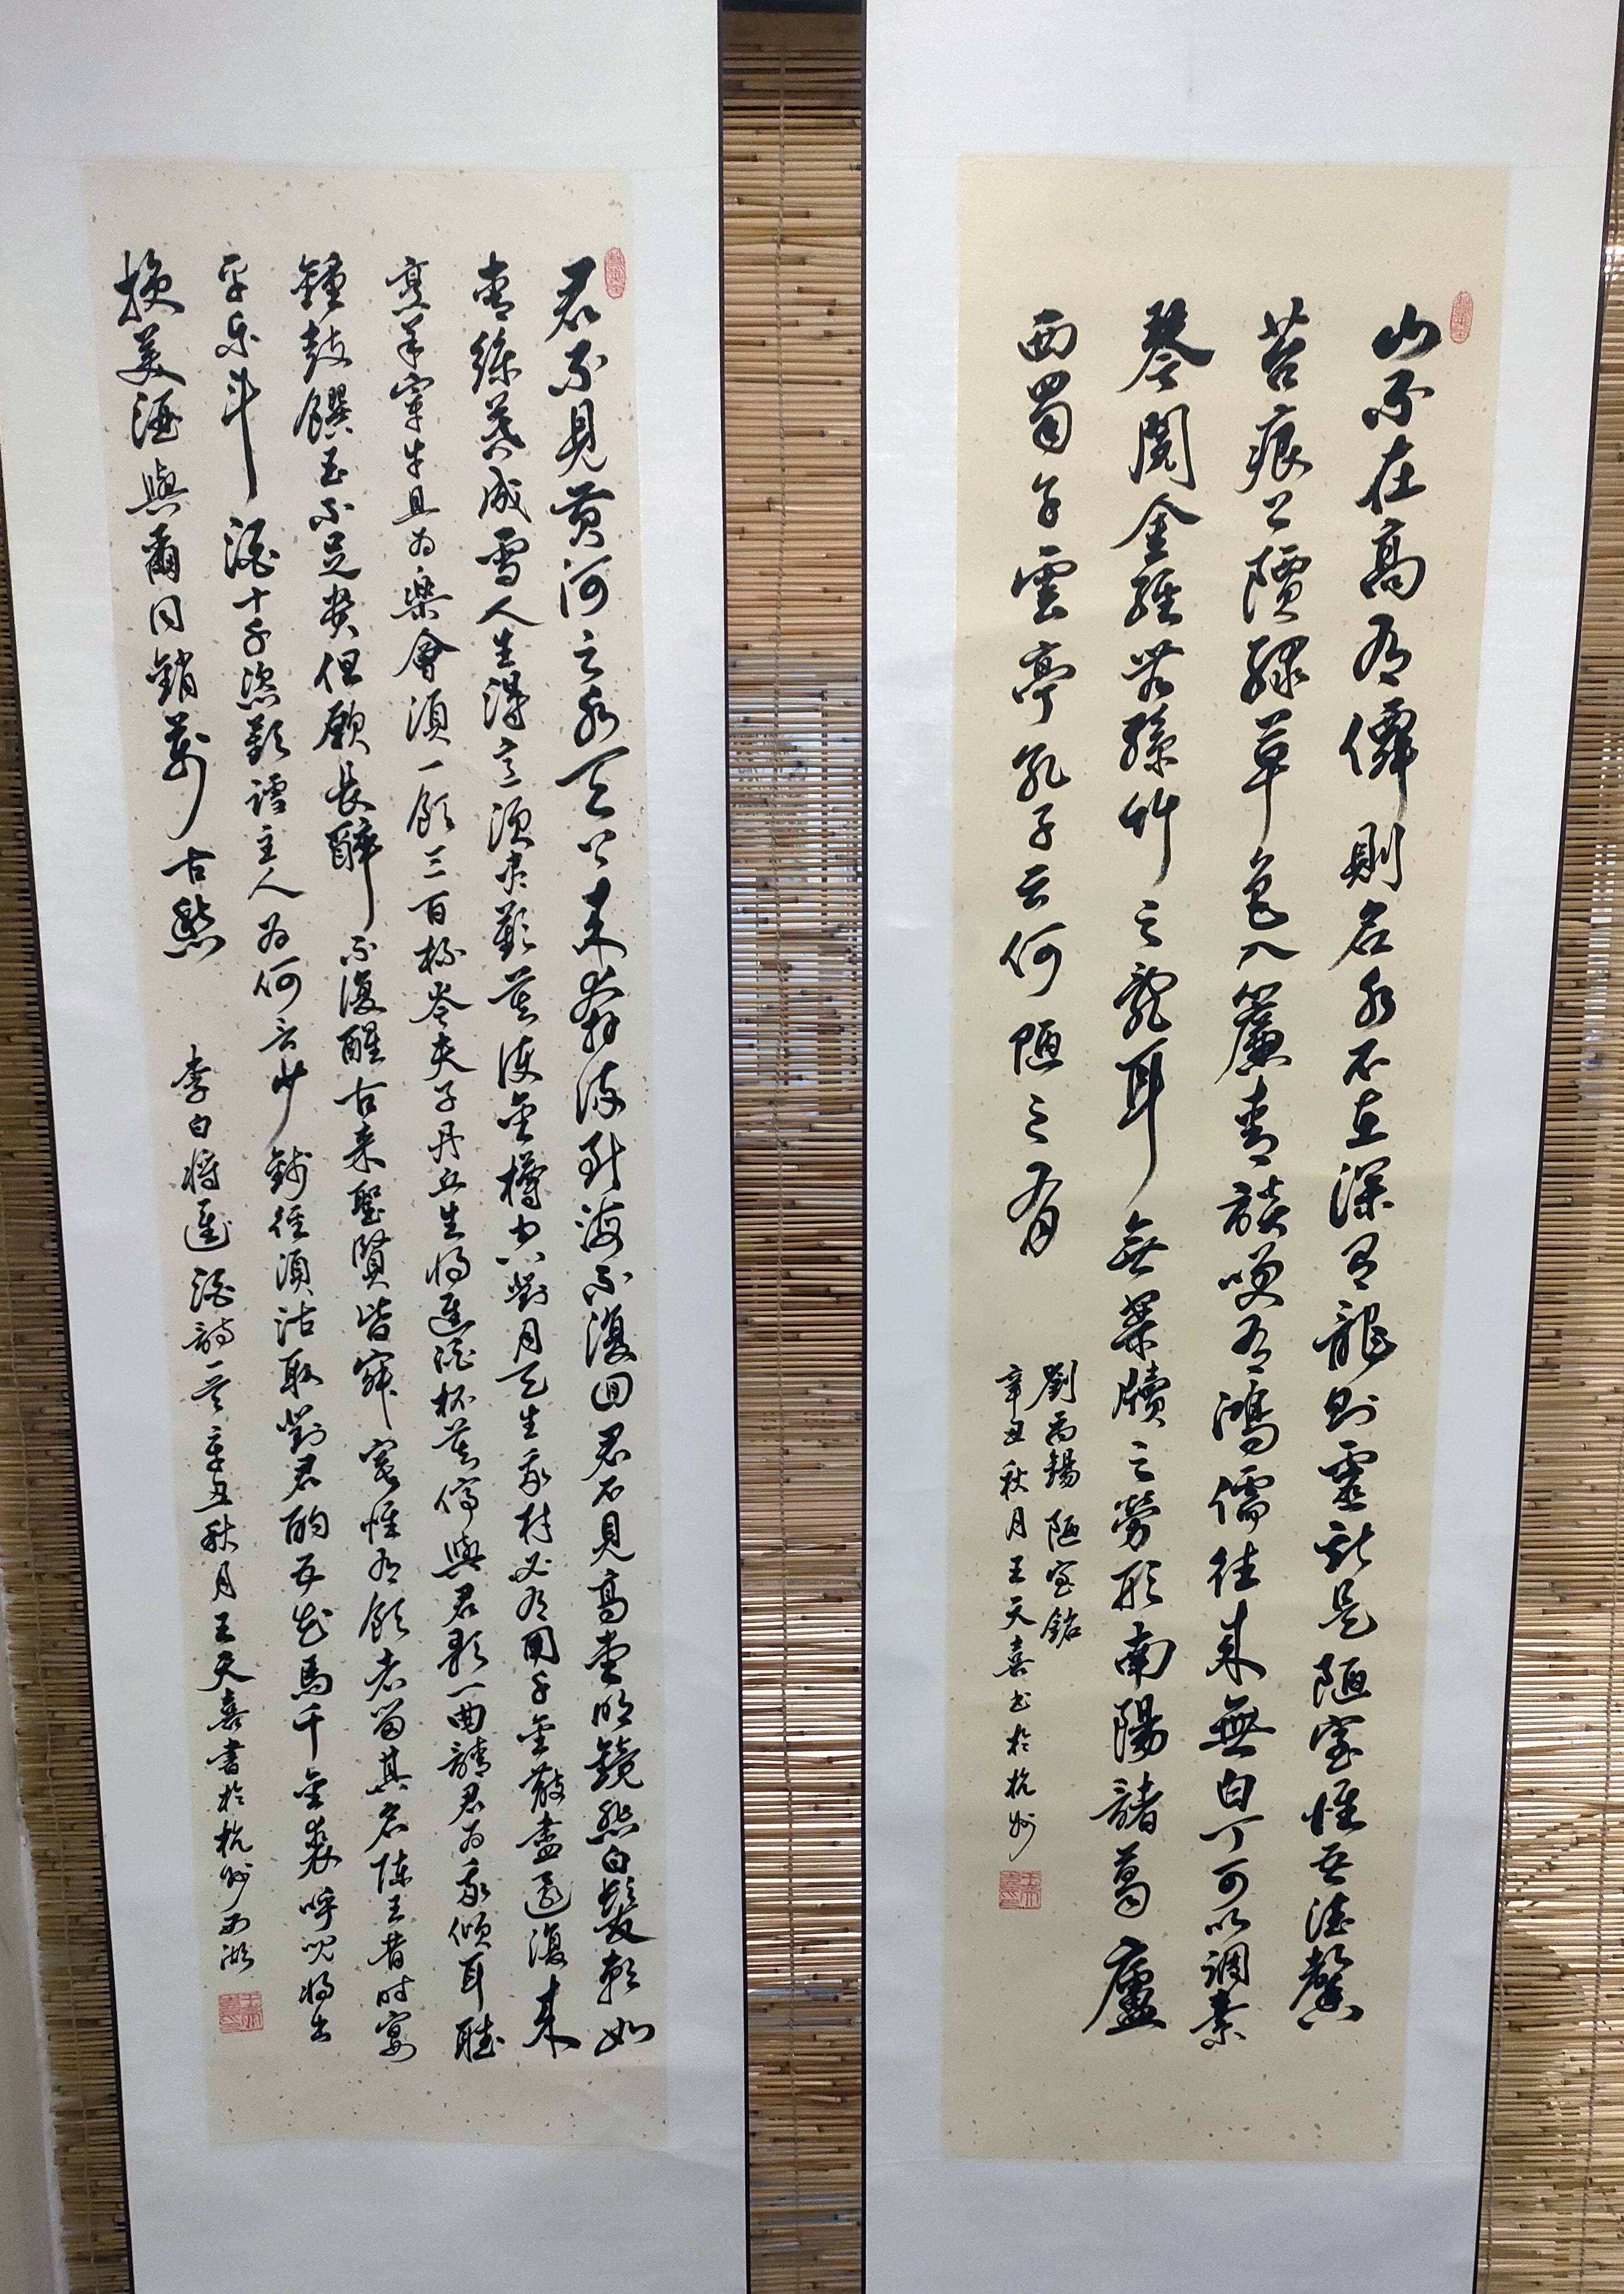 山不在高有僊則名水不在深有龍則靈斯是陋室惟吾德馨
苔痕上階綠草色入簾青談笑有鴻儒往来無白丁可以調素
琴閱金經無絲竹之亂耳無案牘之勞形南陽諸葛廬
西蜀子雲亭孔子云何陋之有
劉禹錫陋室銘
辛丑秋月王天喜书於杭州
君不見黃河之水天上来奔流到海不復回君不見高堂明鏡悲白髮朝如
青絲暮成雪人生得意須盡歡莫使金樽空對月天生我材必有用千金散盡還復来
烹羊宰牛且為樂會須一飲三百杯岑夫子丹丘生將進酒杯莫停與君歌一曲請君為我傾耳聽
鐘鼓饌玉不足貴但願長醉不復醒古来聖賢皆寂寞惟有飲者留其名陳王昔時宴
平樂斗酒十千恣歡謔主人為何言少錢徑須沽取對君酌五花馬千金裘呼兒將出
換美酒與爾同銷萬古愁李白將進酒詩一首辛丑秋月王天喜書於杭州西湖